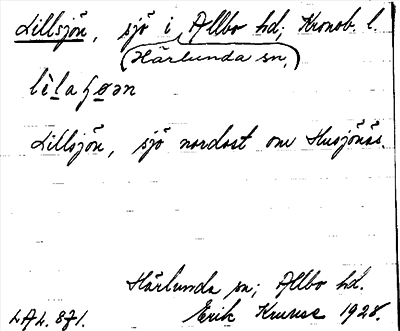 Lillsjön, sjö i Allbo hd; Kronob. l.
(Härlunda sn,)
lìlaʃøən
Lillsjön, sjö nordost om Husjönäs.
Härlunda sn; Allbo hd.
LAL. 871. Erik Kruuse 1928.